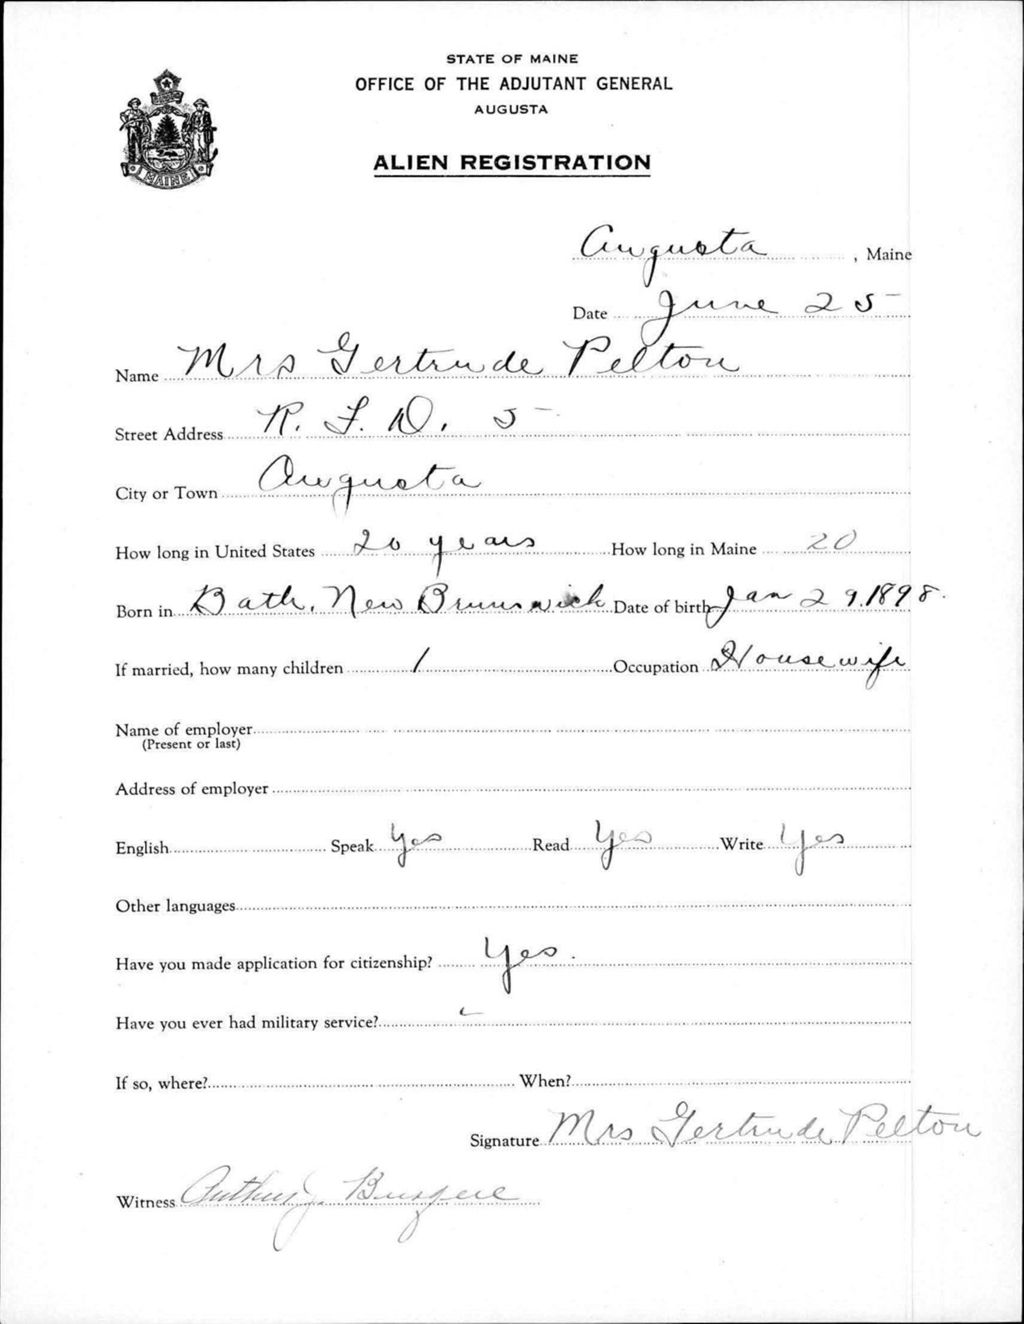 STATE OF MAINE
OFFICE OF THE ADJUTANT GENERAL
AUGUSTA
ALIEN REGISTRATION
MAINE
Augusta, Maine
Date June 25
Name Mrs Gertrude Pelton
Street Address R. F. D. 5
City or Town Augusta
How long in United States 20 years How long in Maine 20
Born in Bath, New Brunswick Date of birth Jan 29, 1898.
If married, how many children 1 Occupation Housewife
Name of employer
(Present or last)
Address of employer
English Speak Yes Read Yes Write Yes
Other languages
Have you made application for citizenship? Yes.
Have you ever had military service?
If so, where? When?
Signature Mrs Gertrude Pelton
Witness Arthur J.